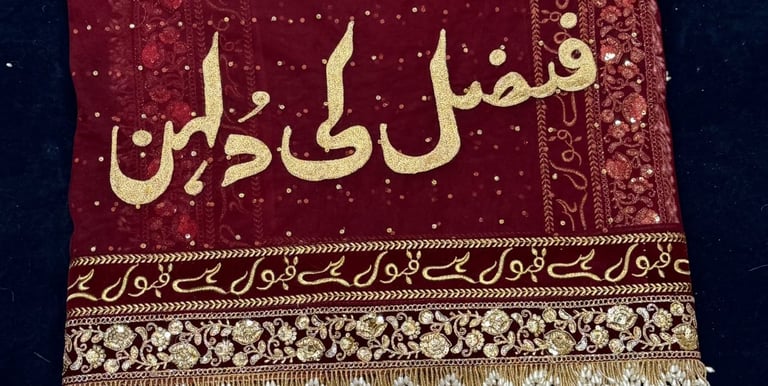 فضل کی دُلہن
قبول ہے قبول ہے قبول ہے قبول ہے قبول ہے
قبول ہے